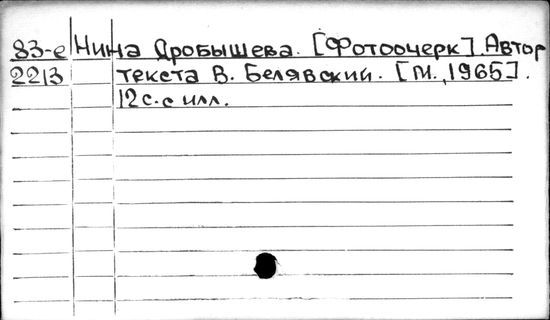 83-е Нина Дробышева. [Фотоочерк]. Автор
2213 текста В. Белявский. [М., 1965].
12 с. с илл.